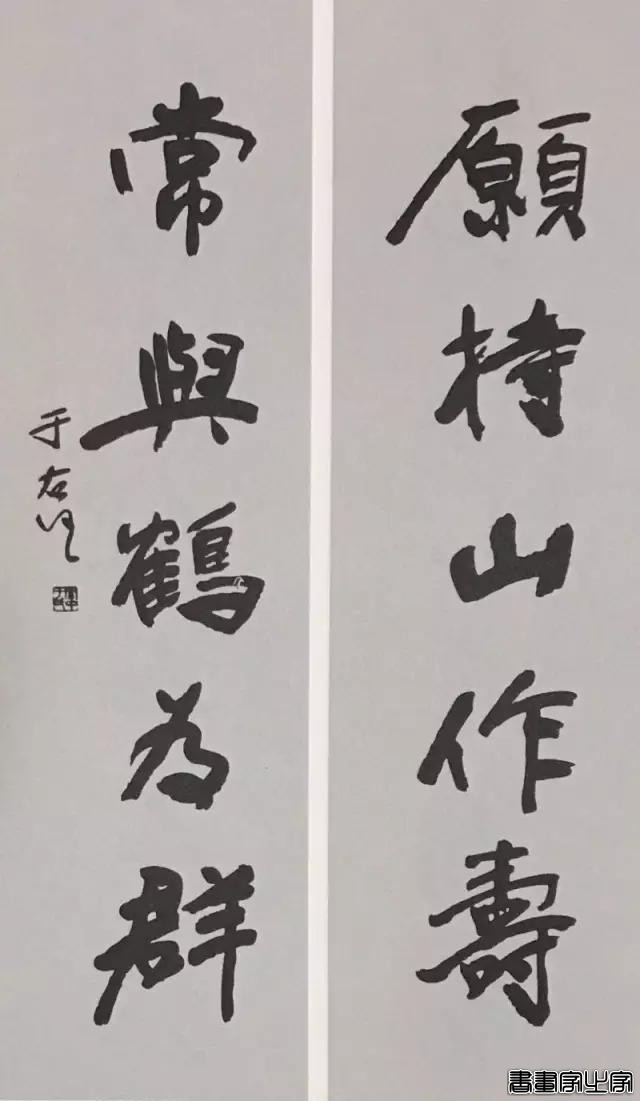 願持山作壽
常與鶴為群
于右任
書畫家之家